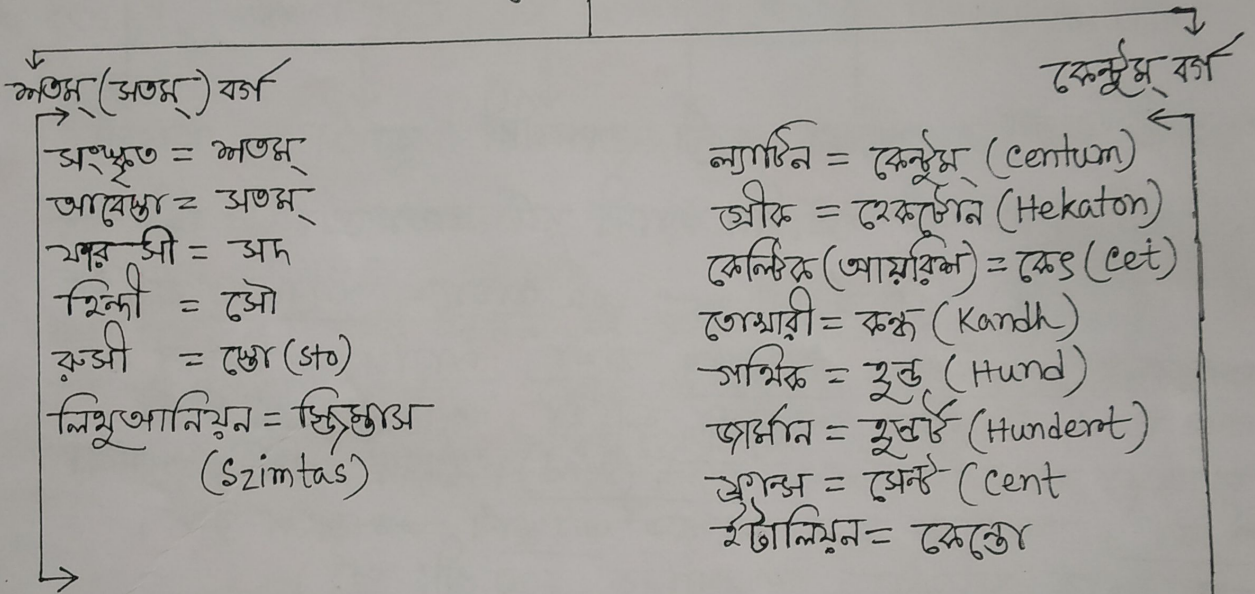 শতম্ (সতম্) বর্গ
সংস্কৃত = শতম্
আবেস্তা = সতম্
ফারসী = সদ
হিন্দী = সৌ
রুসী = স্তো (Sto)
লিথুআনিয়ন = স্জিম্তাস
(Szimtas)
কেন্টুম্ বর্গ
ল্যাটিন = কেন্টুম্ (Centum)
গ্রীক = হেকটোন (Hekaton)
কেল্টিক (আয়রিশ) = কেৎ (Cet)
তোখারী = কন্ধ (Kandh)
গথিক = হুন্ড (Hund)
জার্মান = হুন্ডर्ট (Hundert)
ফ্রান্স = সেন্ট (Cent
ইটালিয়ন = কেন্তো